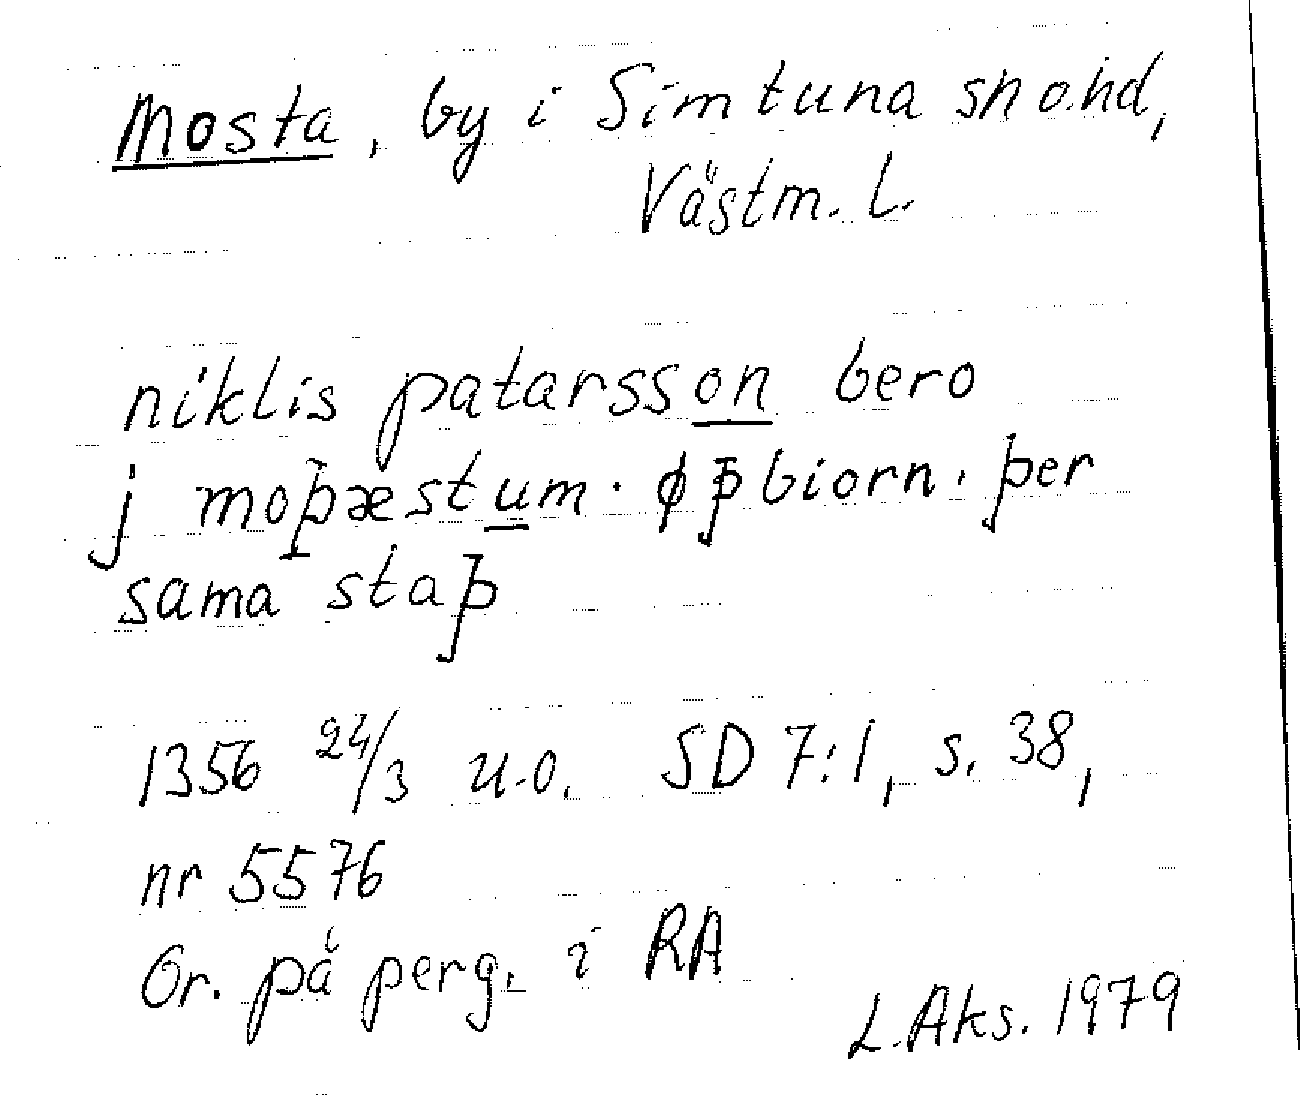 Mosta, by i Simtuna sn o. hd,
Västm. L.
niklis patarsson bero
j moþæstum · øþbiorn · þer
sama staþ
1356 24/3 u.o. SD 7:1, s. 38,
nr 5576
Or. på perg. i RA
L. Aks. 1979